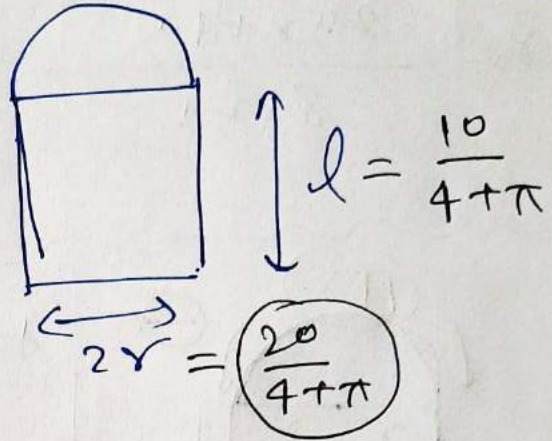 l = 10/(4+π)
2r = 20/(4+π)